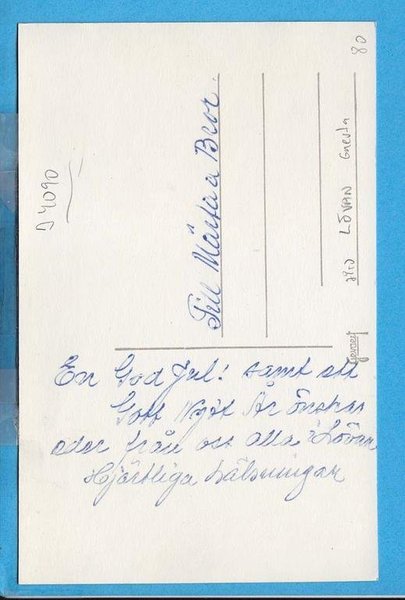 J 4090
80
Till Märta a Bror.
LÖVAN Gnesta
Gevaert
En God Jul! samt ett
Gott Nytt År önskar
eder från oss alla i Lövan
Hjärtliga hälsningar